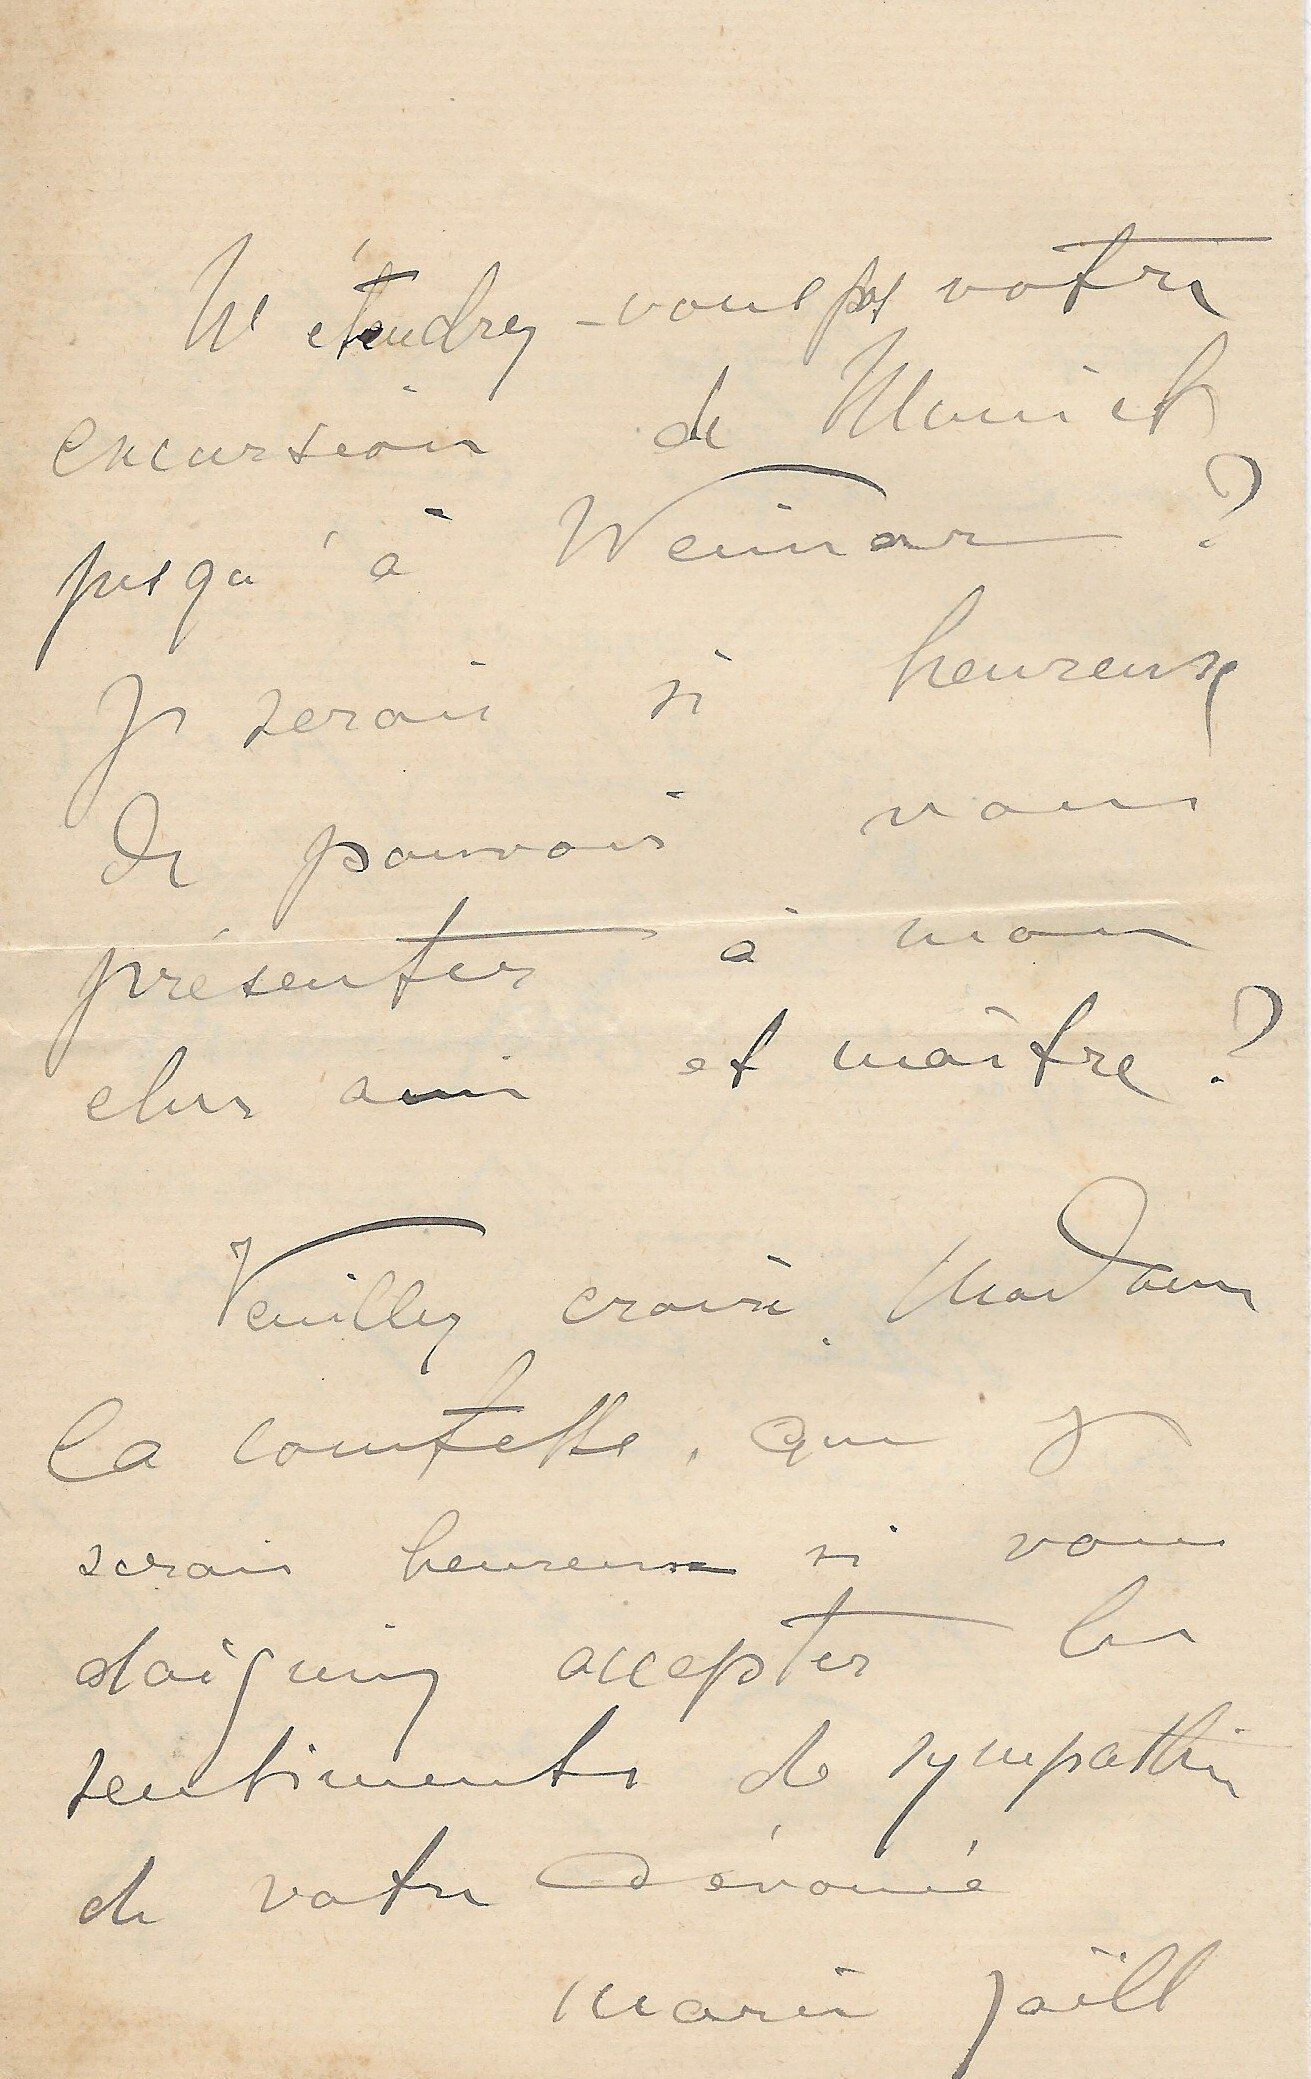 N'étendrez-vous pas votre
excursion de Munich
jusqu'à Weimar ?
Je serais si heureuse
de pouvoir vous
présenter à mon
cher ami et maître ?
Veuillez croire, Madame
la comtesse, que je
serais heureuse si vous
daigniez accepter les
sentiments de sympathie
de votre dévouée
Marie Jaëll